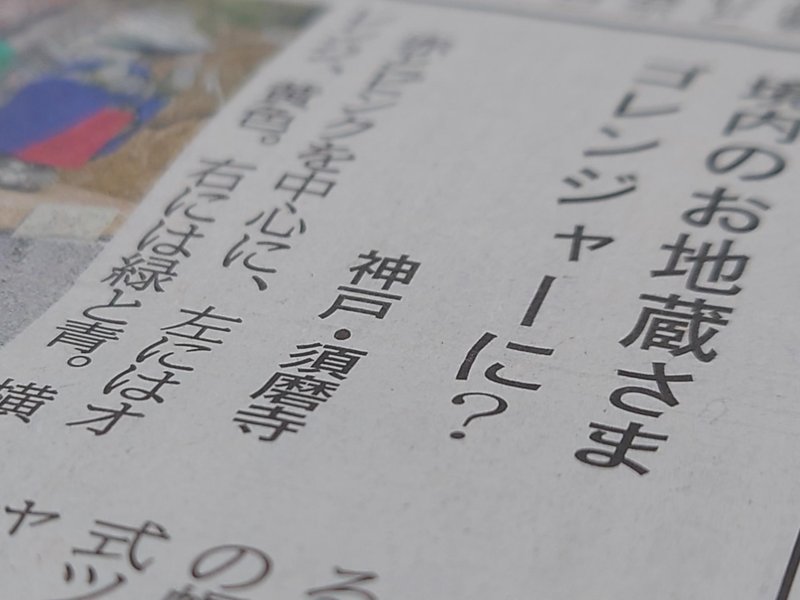 境内のお地蔵さま
ゴレンジャーに?
神戸・須磨寺
赤とピンクを中心に、左にはオ
レンジ、黄色。右には緑と青。横
る
の
式ツ
ャ